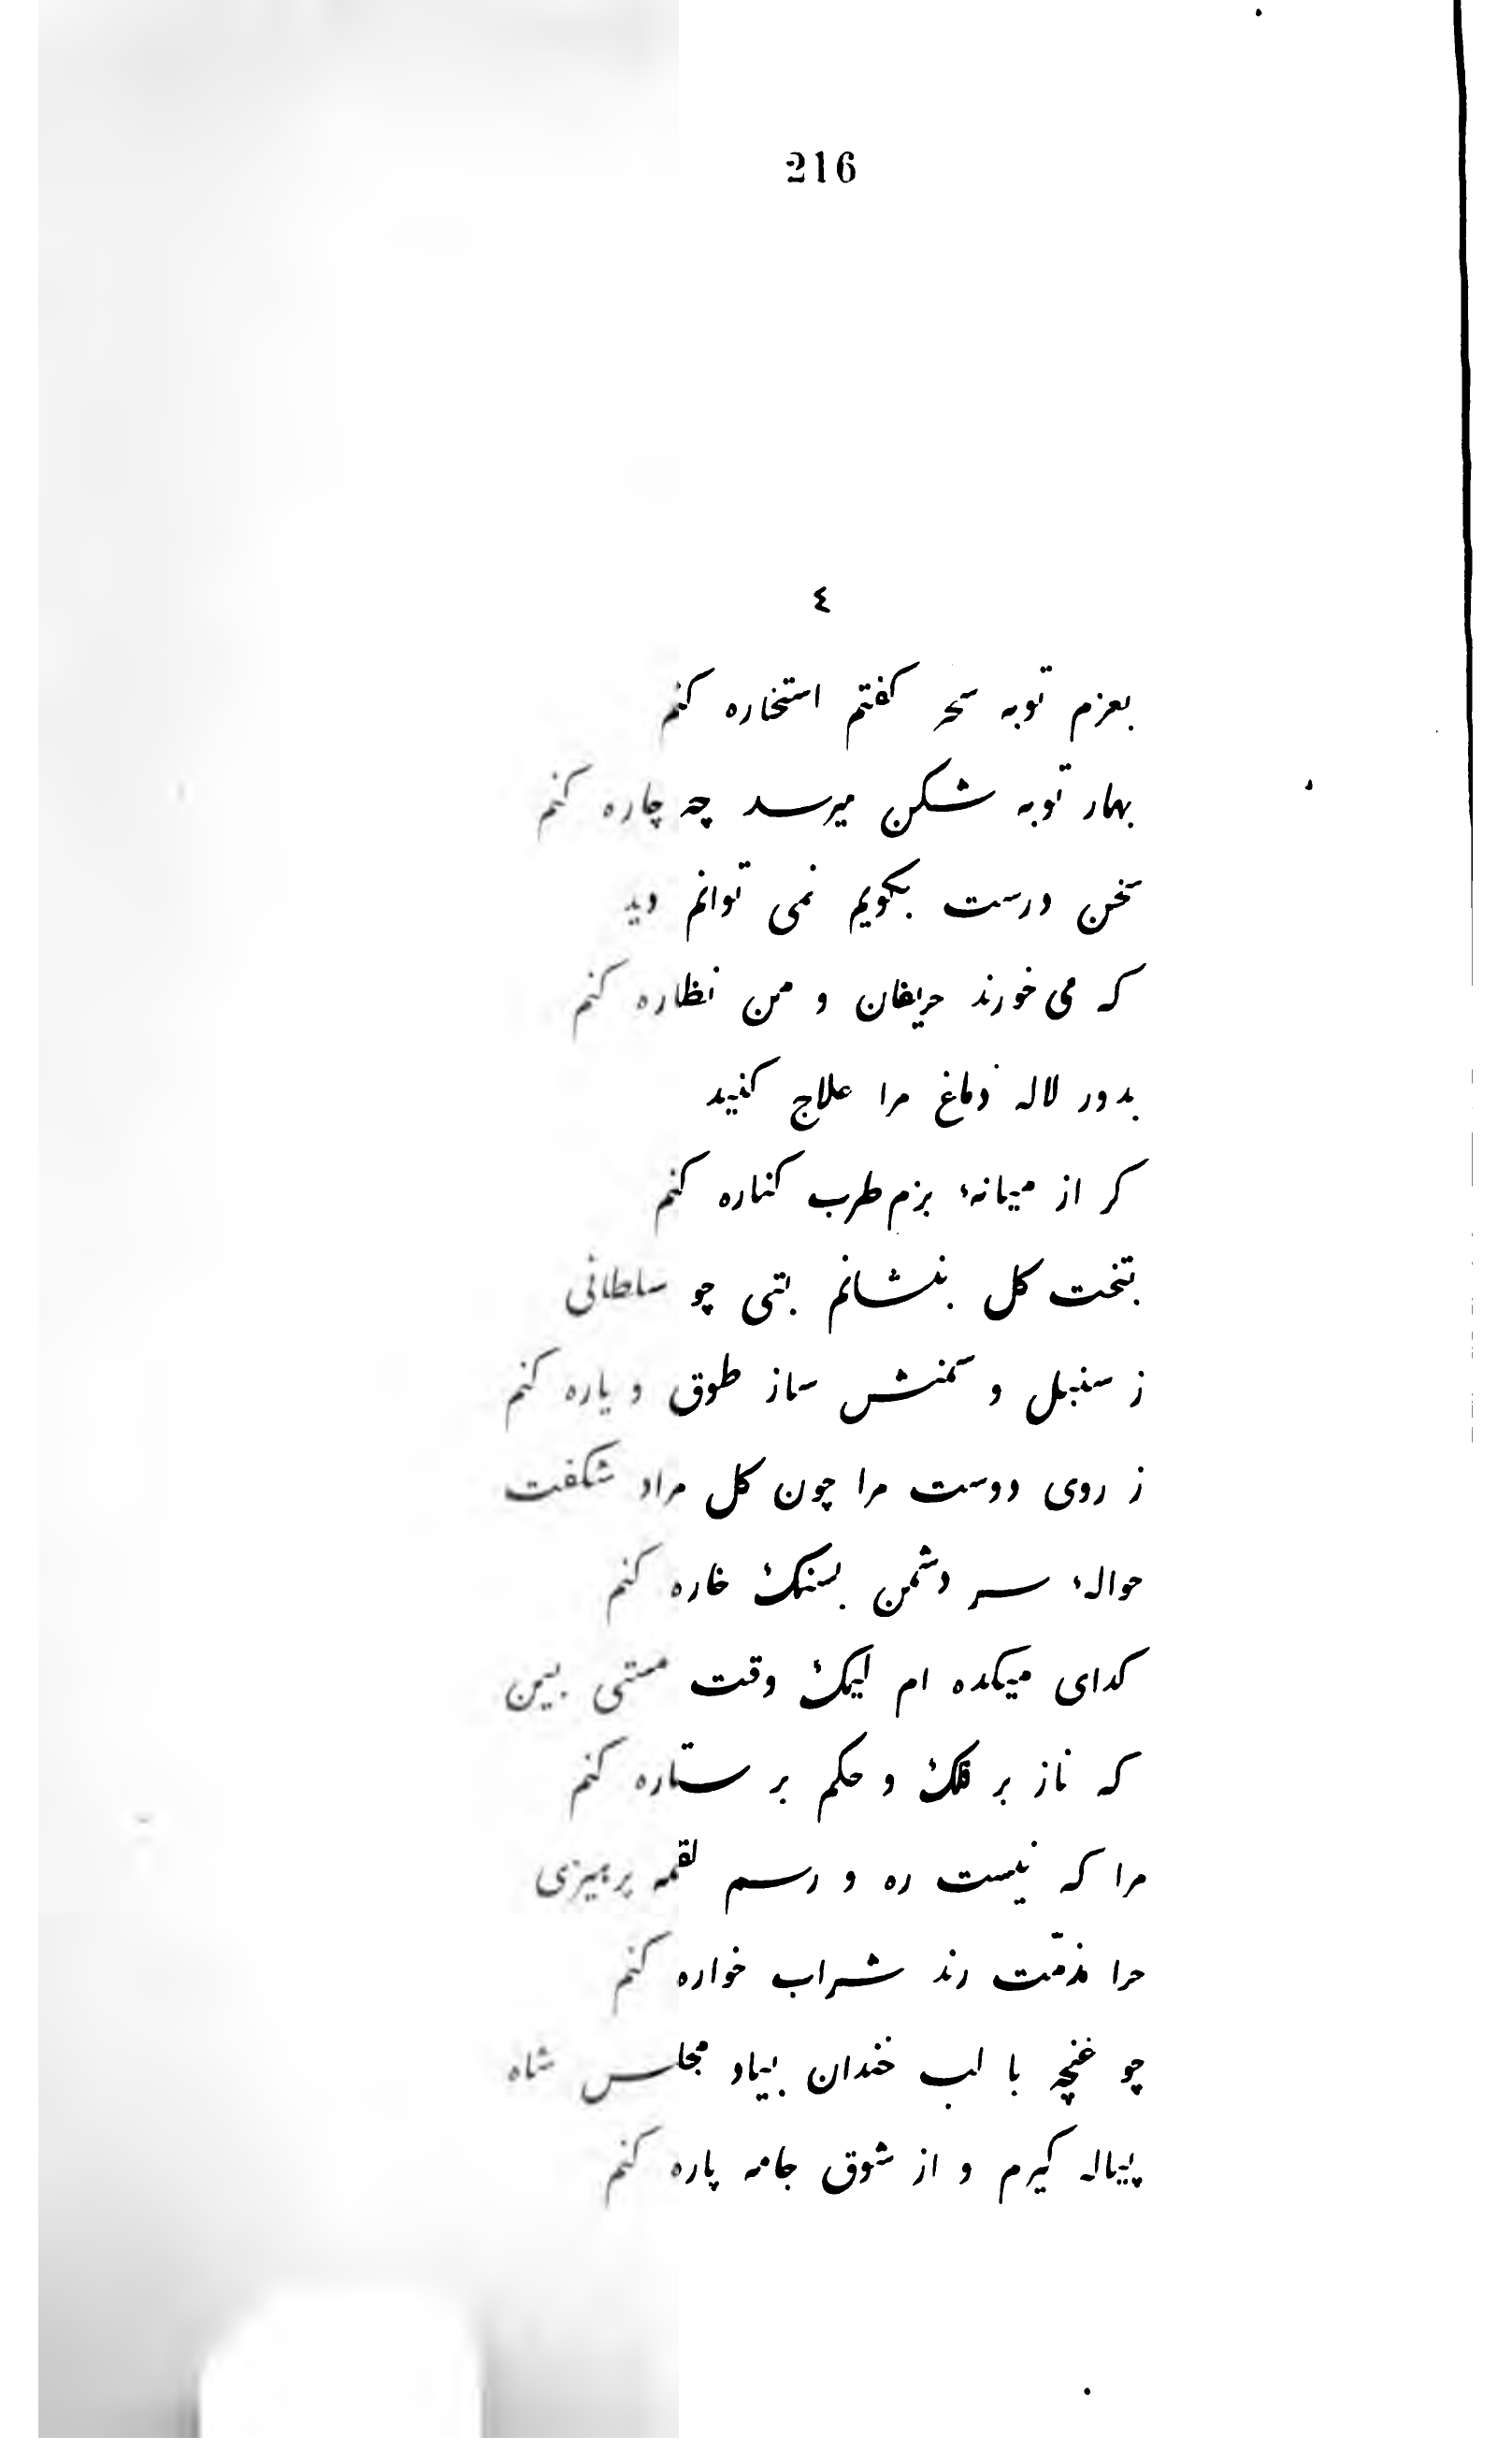 216
٤
بعزم توبه سحر كفتم استخاره كنم
بهار توبه شكن ميرسد چه چاره كنم
سخن درست بكويم نمى توانم ديد
كه مى خورند حريفان و من نظاره كنم
بدور لاله دماغ مرا علاج كنيد
كر از ميانهٔ بزم طرب كناره كنم
بتخت كل بنشانم بتى چو سلطانى
ز سنبل و سمنش ساز طوق و ياره كنم
ز روى دوست مرا چون كل مراد شكفت
حوالهٔ سر دشمن بسنك خاره كنم
كداى ميكده ام ليك وقت مستى ببين
كه ناز بر فلك و حكم بر ستاره كنم
مرا كه نيست ره و رسم لقمه پرهيزى
حرا مذمّت رند شراب خواره كنم
چو غنچه با لب خندان بياد مجلس شاه
پياله كيرم و از شوق جامه پاره كنم